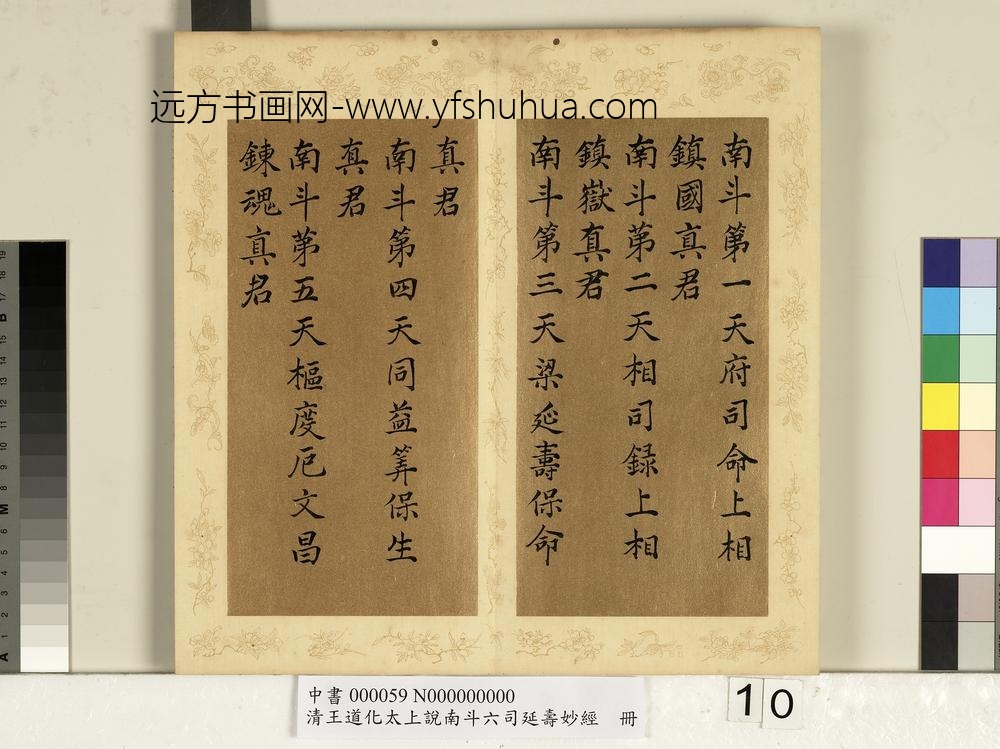 远方书画网-www.yfshuhua.com
南斗第一天府司命上相
鎮國真君
南斗第二天相司録上相
鎮嶽真君
南斗第三天梁延壽保命
真君
南斗第四天同益筭保生
真君
南斗第五天樞度厄文昌
鍊魂真君
中書 000059 N000000000
清王道化太上說南斗六司延壽妙經 冊
10